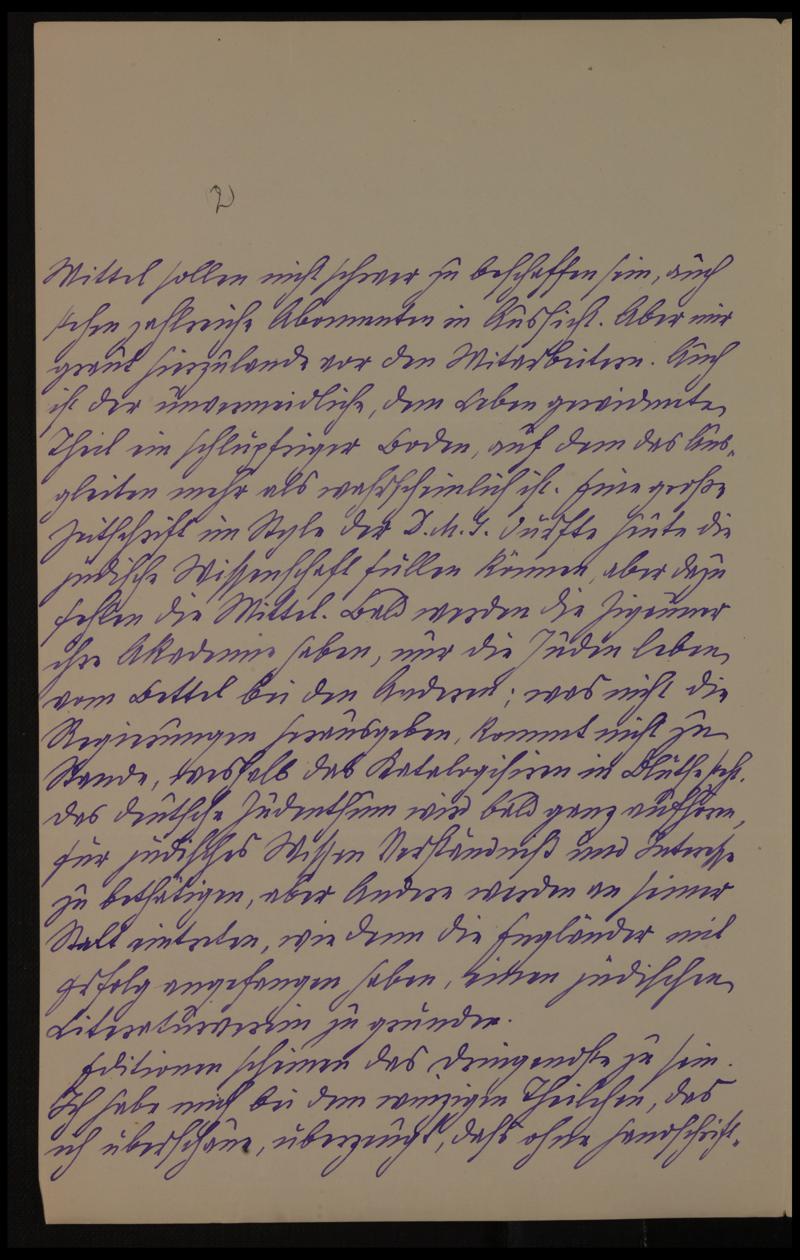 2)
Mittel sollen nicht schwer zu beschaffen sein, auch
stehen zahlreiche Abonnenten in Aussicht. Aber mir
graut hierzulande vor den Mitarbeitern. Auch
ist der unvermeidliche, dem Leben gewidmete
Theil ein schlüpfriger Boden, auf dem das Aus-
gleiten mehr als wahrscheinlich ist. Eine große
Zeitschrift im Style der D. M. G. dürfte heute die
jüdische Wissenschaft füllen können, aber dazu
fehlen die Mittel. Bald werden die Zigeuner
ihre Akademie haben, nur die Juden leben
vom Bettel bei den Anderen; was nicht die
Regierungen herausgeben, kommt nicht zu
Stande, weshalb das Katalogisiren in Blüthe steht.
Das deutsche Judenthum wird bald ganz aufhören,
für jüdisches Wissen Verständniß und Interesse
zu bethätigen, aber Andere werden an seiner
Statt eintreten, wie denn die Engländer mit
Erfolg angefangen haben, einen jüdischen
Literaturverein zu gründen.
Editionen scheinen das Dringendste zu sein.
Ich habe mich bei dem winzigen Theilchen, das
ich überschaue, überzeugt, daß ohne handschrift-